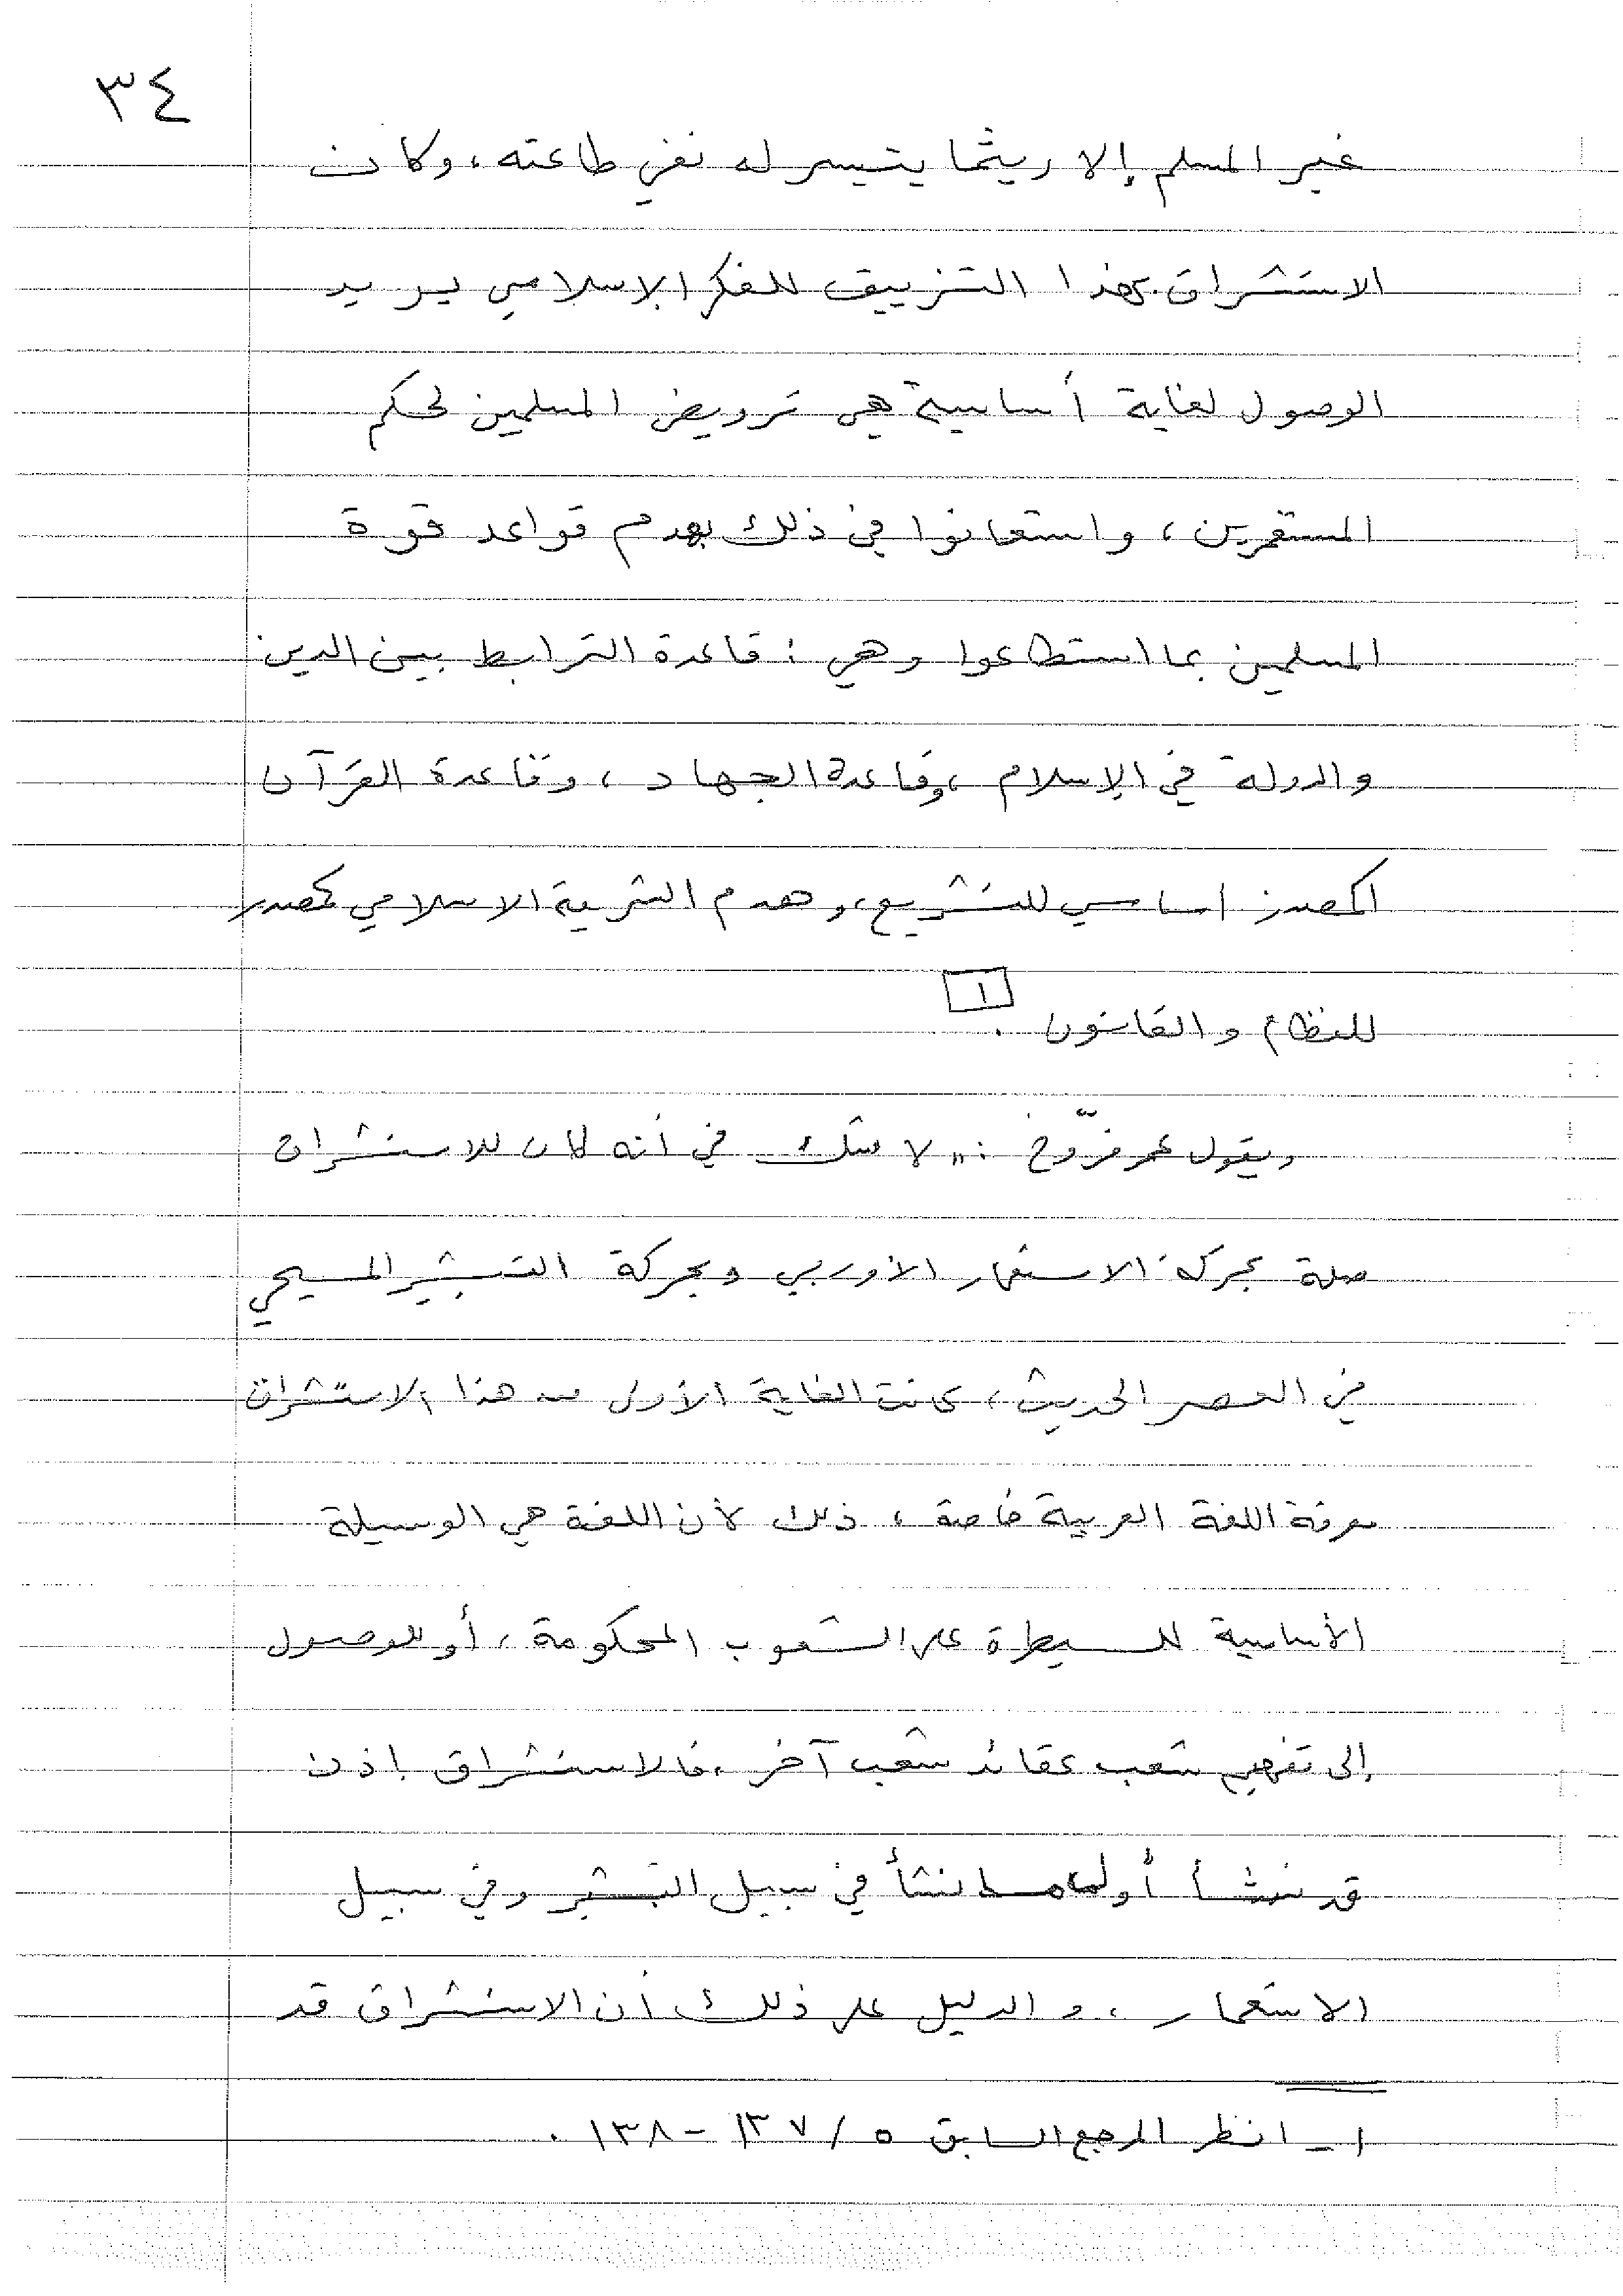 ٣٤
غير المسلم إلا ريثما يتيسر له نفي طاعته، وكان
الاستشراق بهذا التزييف للفكر الإسلامي يريد
الوصول لغاية أساسية هي ترويض المسلمين لحكم
المستعمرين، واستعانوا في ذلك بهدم قواعد قوة
المسلمين بما استطاعوا وهي: قاعدة الترابط بين الدين
والدولة في الإسلام، وقاعدة الجهاد، وقاعدة القرآن
كمصدر أساسي للتشريع، وهدم الشريعة الاسلامي كمصدر
للنظام والقانون ١ .
ويقول عمر فرّوخ: "لا شك في أنه كان للاستشراق
صلة بحركة الاستعمار الأوربي وبحركة التبشير المسيحي
في العصر الحديث، كانت الغاية الأولى من هذا الاستشراق
معرفة اللغة العربية خاصة، ذلك لأن اللغة هي الوسيلة
الأساسية للسيطرة على الشعوب المحكومة، أو للوصول
إلى تفهيم شعب عقائد شعب آخر، فالاستشراق إذن
قد نشأ أول ما نشأ في سبيل التبشير وفي سبيل
الاستعمار، والدليل على ذلك أن الاستشراق قد
١ - انظر المرجع السابق ٥ / ١٣٧ - ١٣٨ .